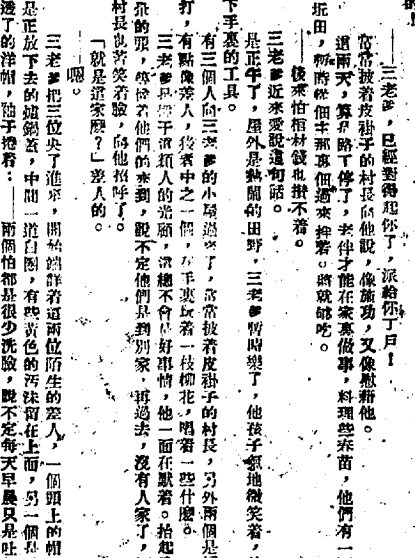 的!
——三老爹,已經對得起你了,派給你丁戶!
常常披着皮褂子的村長向他說,像施功,又像慰藉他。
這兩天,算是路丁停了,老伴才能在家裏做事,料理些春苗,他們有一
坵田,暫時從佃主那裏佃過來 着。將就吃。
後來怕棺材錢也措不着。
三老爹近來愛說這句話。
是正午了,屋外是熱鬧的田野,三老爹暫時樂了,他孩子氣地微笑着,
下手裏的工具。
有三個人向三老爹的小屋過來了,常常披着皮褂子的村長,另外兩個是
打,有點像差人,後者中之一個,在手裏玩着一枝柳花,唱着一些什麼。
三老爹是 于這類人的光顧,這總不會是好事情,他一面在默着。抬起
的頭,等候着他們的來到,說不定他們是到別家,再過去,沒有人家了,
村長也着笑着臉,向他招呼了。
「就是這家麼?」差人的。
——嗯。
三老爹把三位央了進來,開始端詳着這兩位陌生的差人,一個頭上的帽
是正放下去的 鍋蓋,中間一道白圈,有些黃色的污沫留在上面,另一個是
透了的洋帽,袖子捲着:——兩個怕都是很少洗臉,說不定每天早晨只是吐